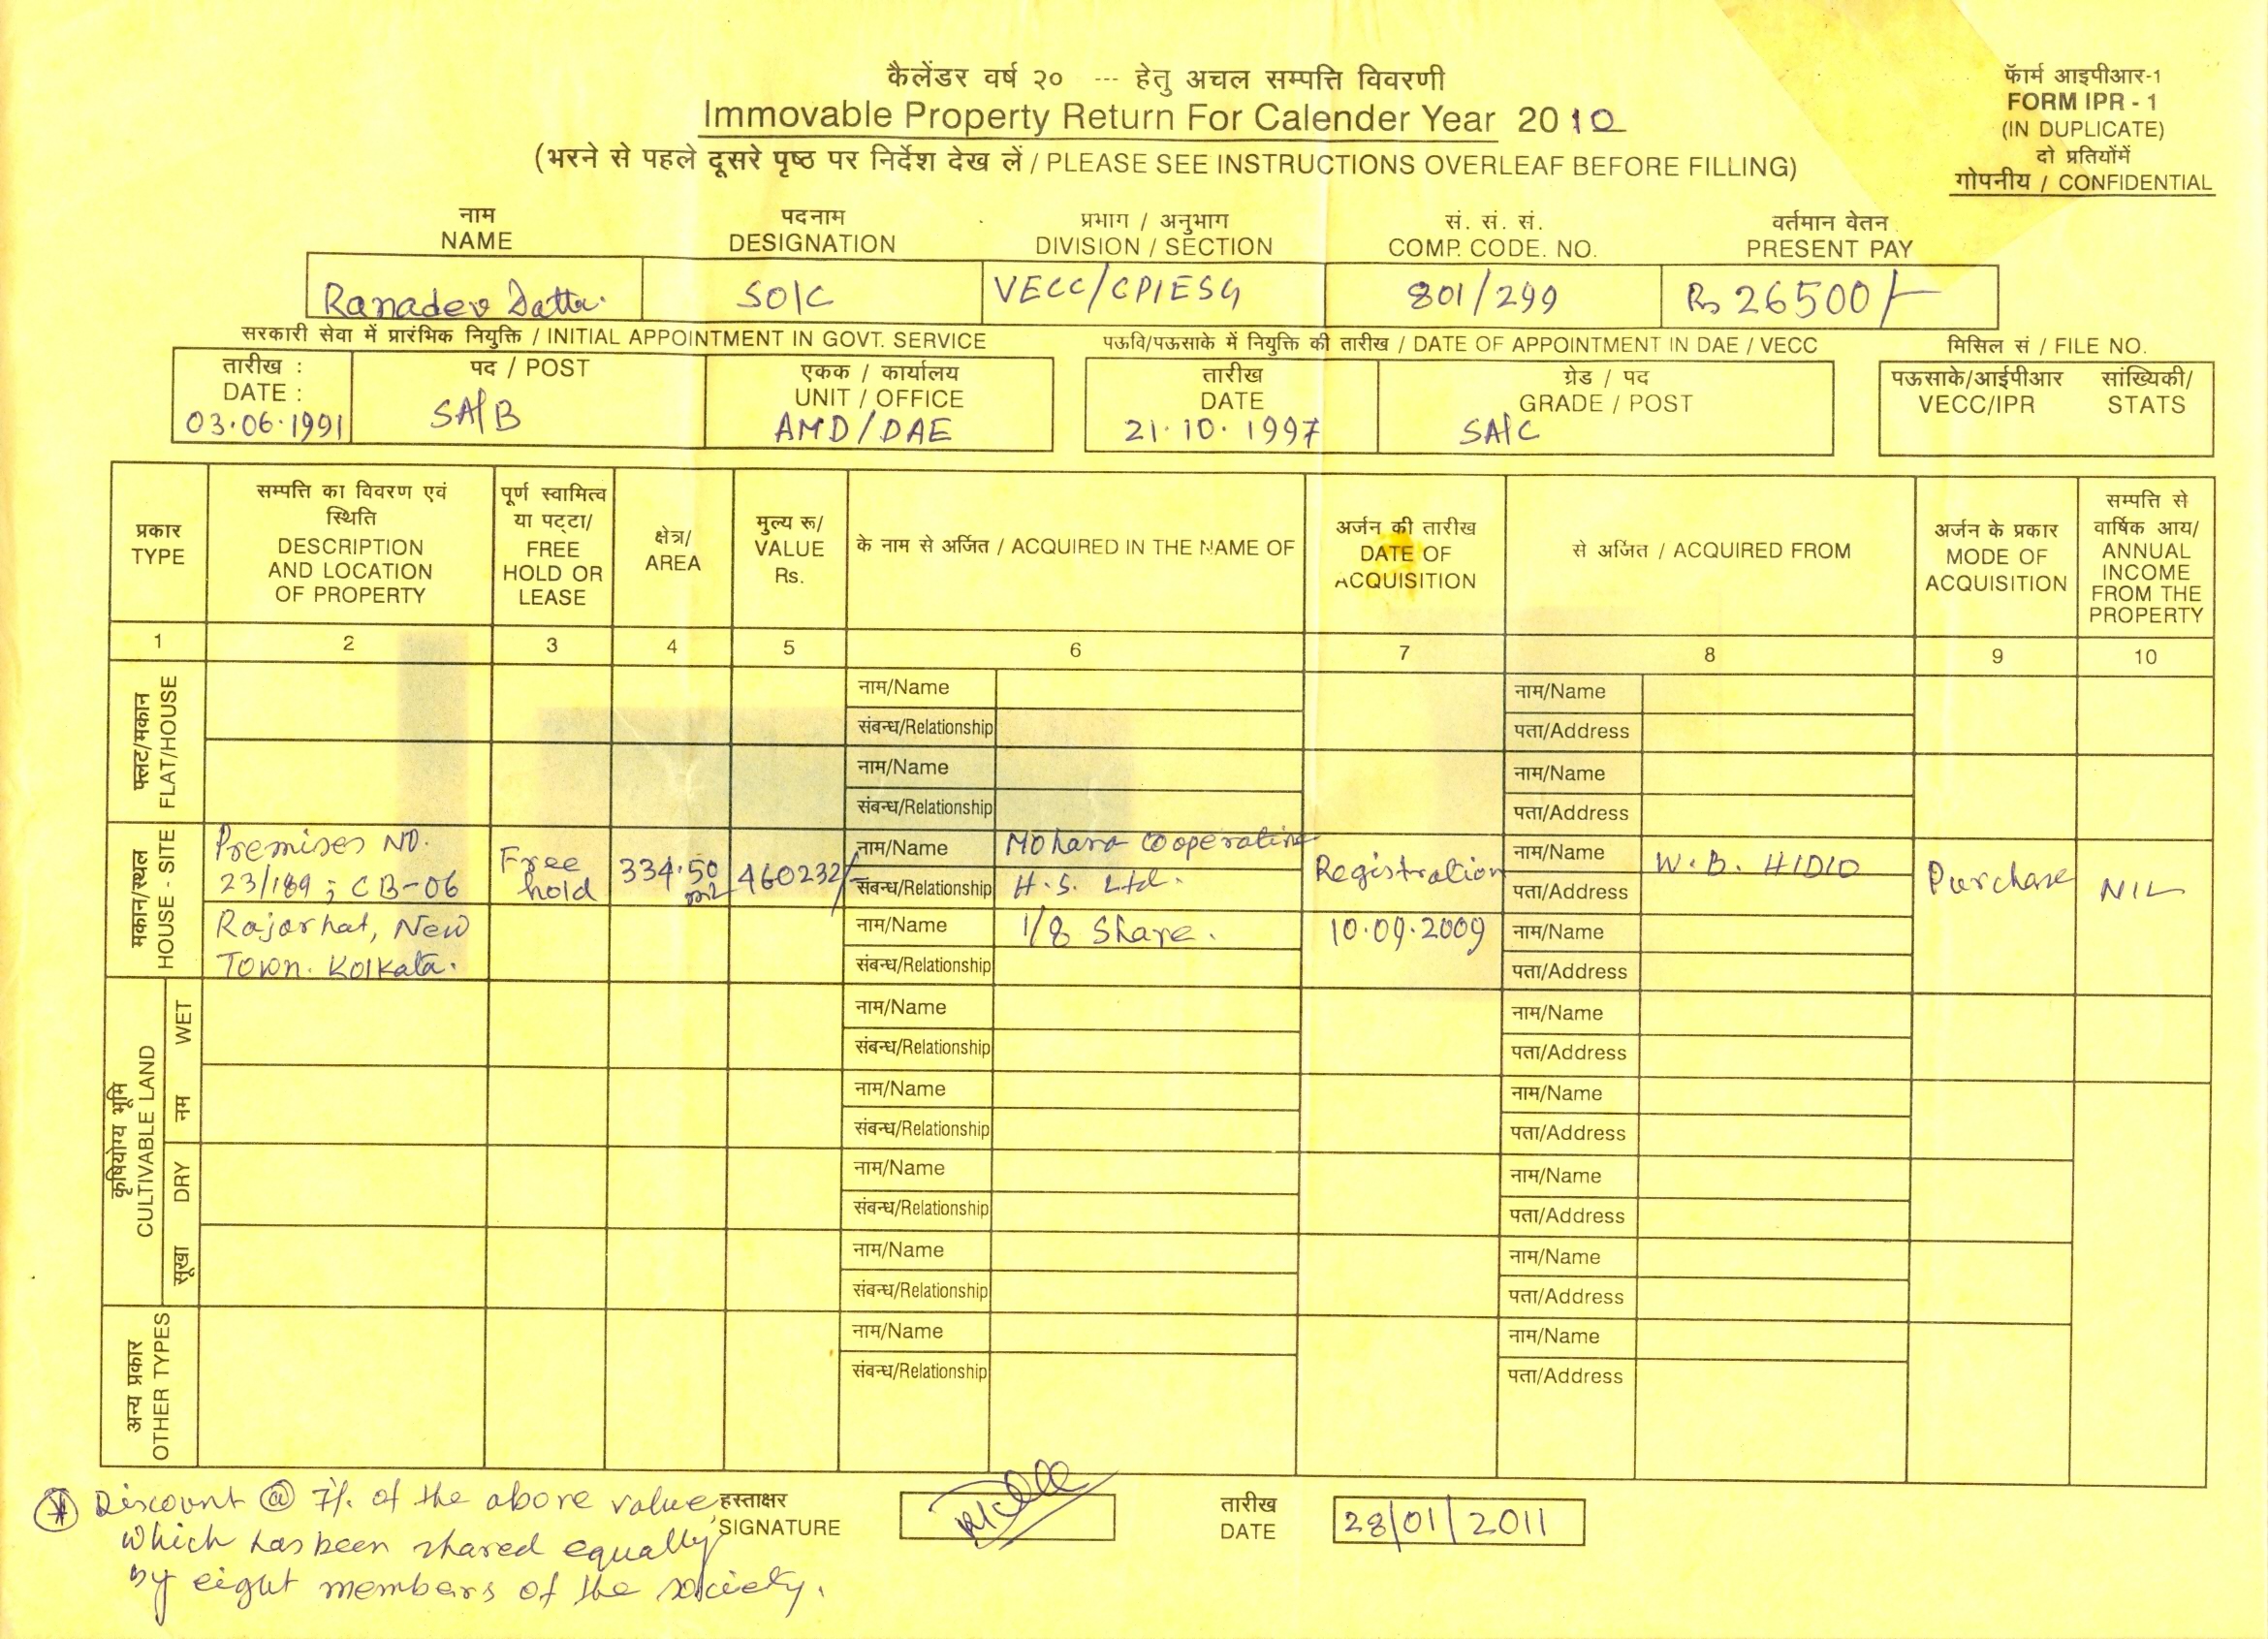 कैलेंडर वर्ष २० --- हेतु अचल सम्पत्ति विवरणी
Immovable Property Return For Calender Year 2010
(भरने से पहले दूसरे पृष्ठ पर निर्देश देख लें / PLEASE SEE INSTRUCTIONS OVERLEAF BEFORE FILLING)
फॅार्म आइपीआर-1
FORM IPR - 1
(IN DUPLICATE)
दो प्रतियोंमें
गोपनीय / CONFIDENTIAL
नाम पदनाम प्रभाग / अनुभाग सं. सं. सं. वर्तमान वेतन
NAME DESIGNATION DIVISION / SECTION COMP. CODE. NO. PRESENT PAY
Ranadev Datta. SO/C VECC/CPIESG 801/299 Rs 26500/-
सरकारी सेवा में प्रारंभिक नियुक्ति / INITIAL APPOINTMENT IN GOVT. SERVICE पऊवि/पऊसाके में नियुक्ति की तारीख / DATE OF APPOINTMENT IN DAE / VECC मिसिल सं / FILE NO.
तारीख : पद / POST एकक / कार्यालय तारीख ग्रेड / पद पऊसाके/आईपीआर सांख्यिकी/
DATE : UNIT / OFFICE DATE GRADE / POST VECC/IPR STATS
03.06.1991 SA/B AMD/DAE 21.10.1997 SA/C
प्रकार
TYPE
सम्पत्ति का विवरण एवं
स्थिति
DESCRIPTION
AND LOCATION
OF PROPERTY
पूर्ण स्वामित्व
या पट्टा/
FREE
HOLD OR
LEASE
क्षेत्र/
AREA
मुल्य रू/
VALUE
Rs.
के नाम से अर्जित / ACQUIRED IN THE NAME OF
अर्जन की तारीख
DATE OF
ACQUISITION
से अर्जित / ACQUIRED FROM
अर्जन के प्रकार
MODE OF
ACQUISITION
सम्पत्ति से
वार्षिक आय/
ANNUAL
INCOME
FROM THE
PROPERTY
1 2 3 4 5 6 7 8 9 10
फ्लट/मकान
FLAT/HOUSE
नाम/Name नाम/Name
संबन्ध/Relationship पता/Address
नाम/Name नाम/Name
संबन्ध/Relationship पता/Address
मकान/स्थल
HOUSE - SITE
Premises NO.
23/189 ; CB-06
Rajarhat, New
Town. Kolkata.
Free
hold
334.50
m2
460232/
नाम/Name Mohana Cooperative
संबन्ध/Relationship H.S. Ltd.
नाम/Name 1/8 Share.
संबन्ध/Relationship
Registration
10.09.2009
नाम/Name W.B. HIDCO
पता/Address
नाम/Name
पता/Address
Purchase
NIL
कृषियोग्य भूमि
CULTIVABLE LAND
WET
नम
DRY
सूखा
नाम/Name नाम/Name
संबन्ध/Relationship पता/Address
नाम/Name नाम/Name
संबन्ध/Relationship पता/Address
नाम/Name नाम/Name
संबन्ध/Relationship पता/Address
नाम/Name नाम/Name
संबन्ध/Relationship पता/Address
अन्य प्रकार
OTHER TYPES
नाम/Name नाम/Name
संबन्ध/Relationship पता/Address
* Discount @ 7% of the above value,
which has been shared equally
by eight members of the society.
हस्ताक्षर
SIGNATURE
तारीख
DATE
28/01/2011